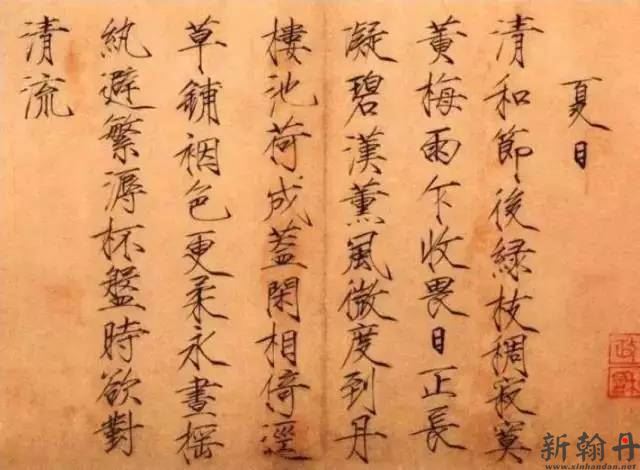 夏日
清和節後緑枝稠寂寞
黃梅雨乍收畏日正長
凝碧漢薰風微度到丹
樓池荷成蓋閑相倚逕
草鋪裀色更柔永晝搖
紈避繁溽杯盤時欲對
清流
新翰丹
www.xinhandan.net